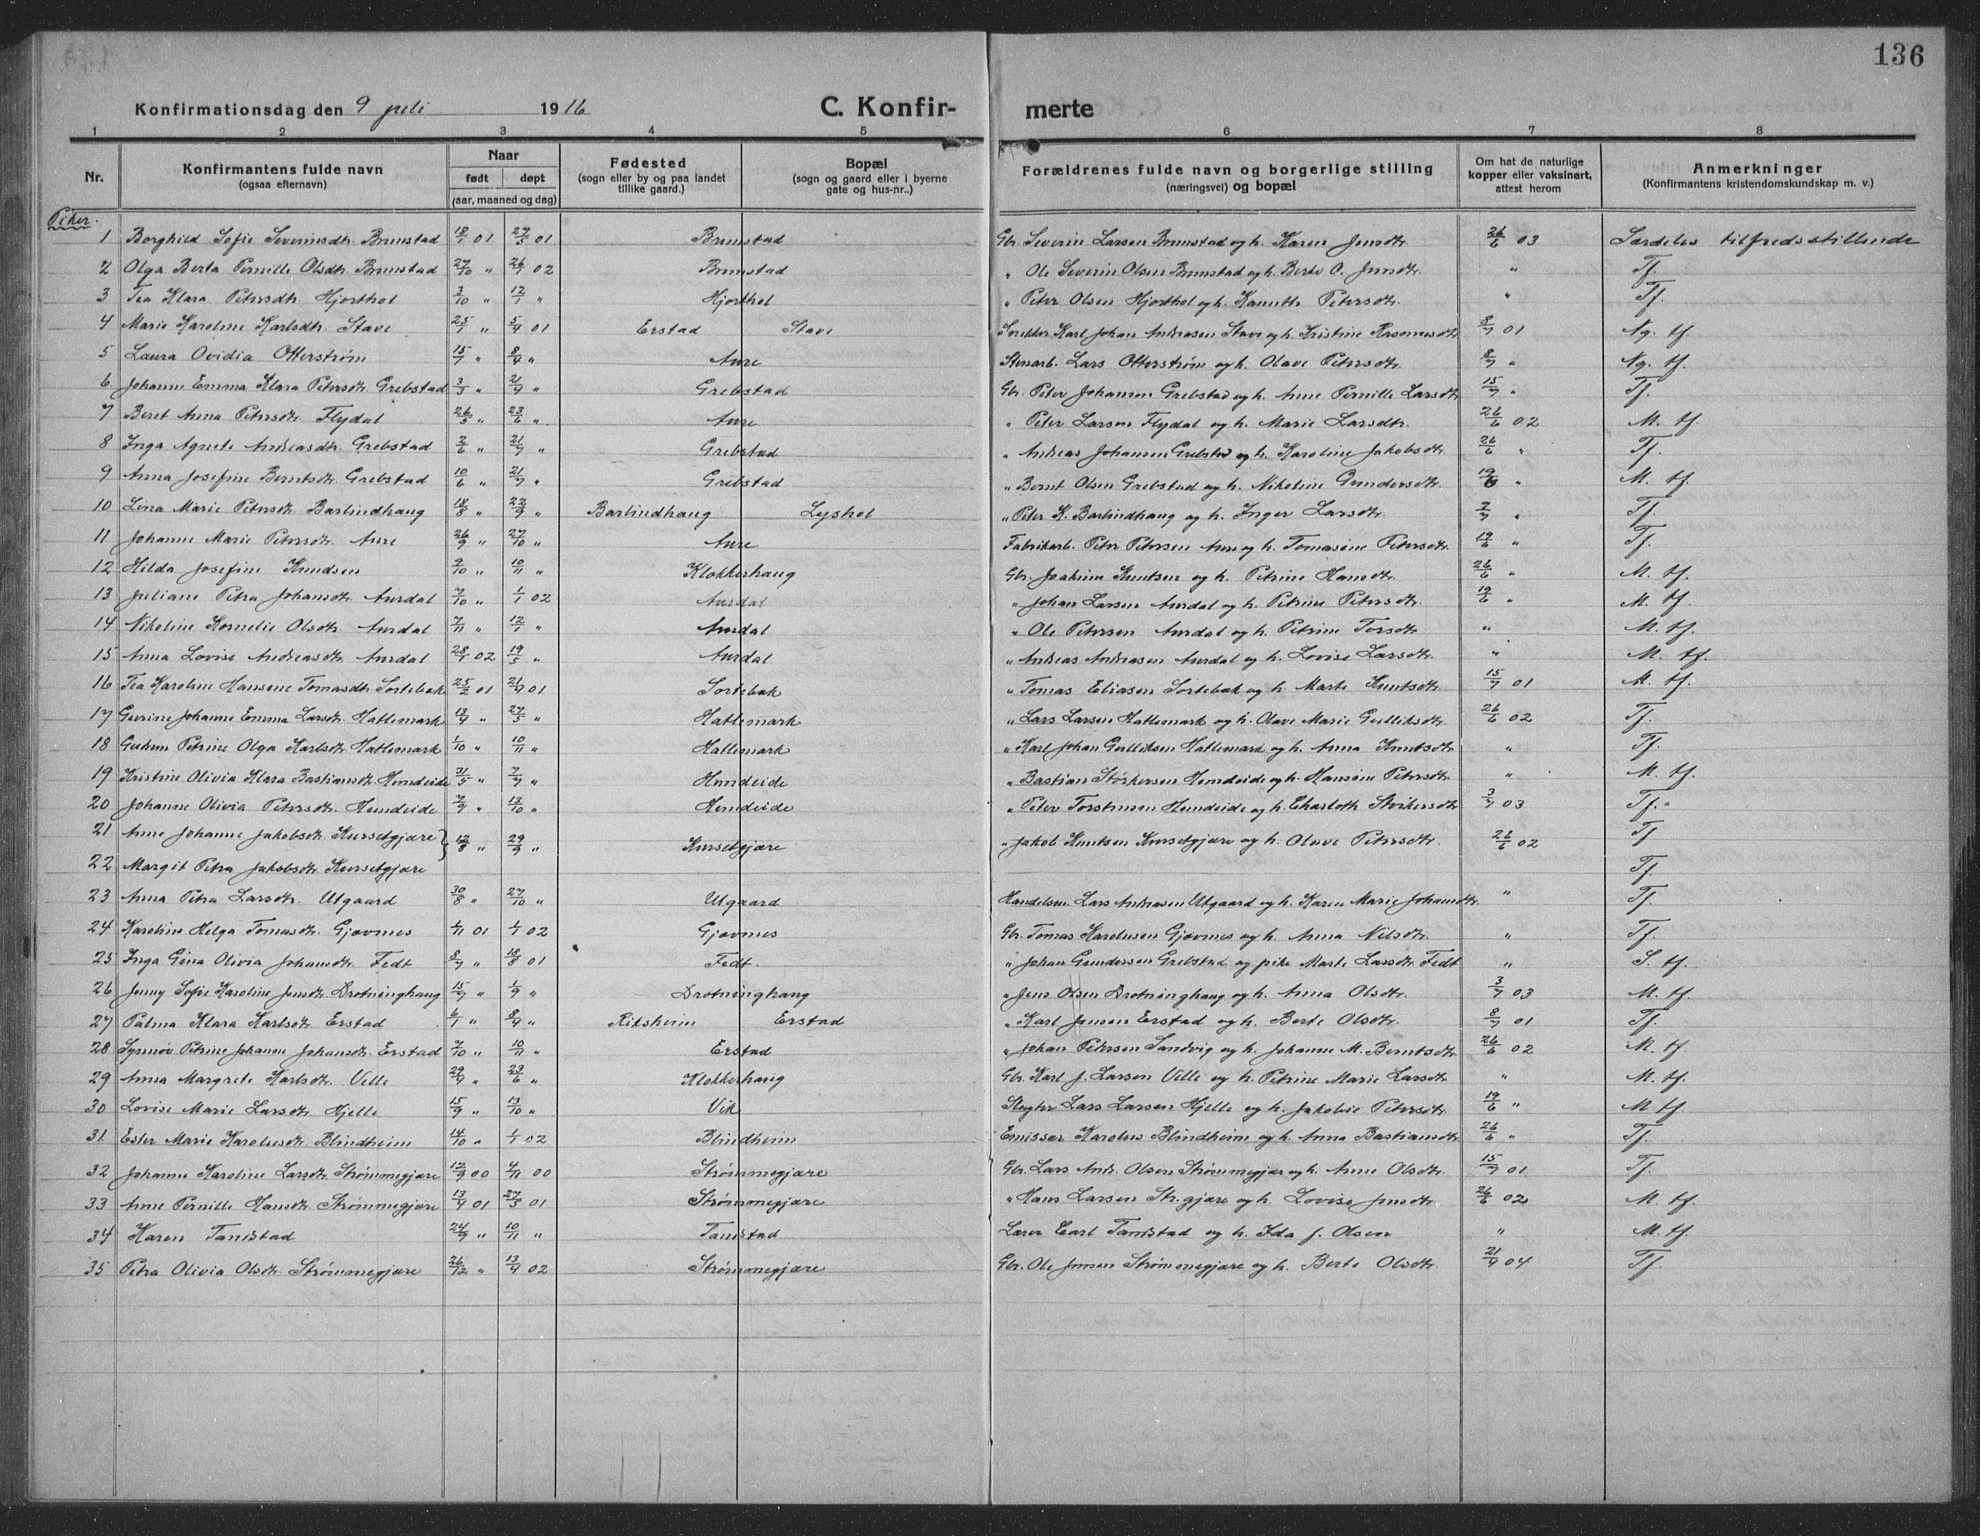 136
Konfirmationsdag den 9 juli 1916 C. Konfir- merte
1 2 3 4 5 6 7 8
Nr. Konfirmantens fulde navn (ogsaa efternavn) Naar født døpt (aar, maaned og dag) Fødested (sogn eller by og paa landet tillike gaard.) Bopæl (sogn og gaard eller i byerne gate og hus-nr..) Forældrenes fulde navn og borgerlige stilling (næringsvei) og bopæl Om hat de naturlige kopper eller vaksinert, attest herom Anmerkninger (Konfirmantens kristendomskundskap m. v.)
Piker.
1 Borghild Sofie Severinsdtr. Brunstad 18/1 01 27/5 01 Brunstad Gbr. Severin Larsen Brunstad og h. Karen Jensdtr. 26/6 03 Særdeles tilfredsstillende
2 Olga Berta Pernille Olsdtr. Brunstad 27/10 " 26/1 02 Brunstad " Ole Severin Olsen Brunstad og h. Berte O. Jensdtr. " Tf.
3 Tea Klara Petersdtr. Hjorthol 3/10 " 12/1 " Hjorthol " Peter Olsen Hjorthol og h. Kanutte Petersdtr. " Tf.
4 Marie Karoline Karlsdtr. Stave 25/1 " 5/4 01 Erstad Stave Snekker Karl Johan Andreasen Stave og h. Kristine Rasmusdtr. 8/7 01 Ng. tf.
5 Laura Ovidia Otterstrøm 15/7 " 8/9 " Aure Stenarb. Lars Otterstrøm og h. Olave Petersdtr. 8/7 " Ng. tf.
6 Johanne Emma Klara Petersdtr. Grebstad 3/3 " 21/4 " Grebstad Gbr. Peter Johansen Grebstad og h. Anne Pernille Larsdtr. 15/7 " Tf.
7 Beret Anna Petersdtr. Flydal 26/5 " 23/6 " Aure " Peter Larsen Flydal og h. Marie Larsdtr. 26/6 02 M. tf.
8 Inga Agnete Andreasdtr. Grebstad 2/6 " 21/7 " Grebstad " Andreas Johansen Grebstad og h. Karoline Jakobsdtr. 26/6 " Tf.
9 Anna Josefine Berntsdtr. Grebstad 10/6 " 21/7 " Grebstad " Bernt Olsen Grebstad og h. Nikoline Gundersdtr. 19/6 " M. tf.
10 Lina Marie Petersdtr. Barlindhaug 18/8 " 22/9 " Barlindhaug Lyshol " Peter K. Barlindhaug og h. Inger Larsdtr. 2/7 " Tf.
11 Johanne Marie Petersdtr. Aure 26/9 " 27/10 " Aure Fabrikarb. Peter Petersen Aure og h. Tomasine Petersdtr. 19/6 " Tf.
12 Hilda Josefine Knudsen 9/10 " 10/11 " Klokkerhaug Gbr. Joakim Knutsen og h. Petrine Hansdtr. 26/6 " M. tf.
13 Juliane Petra Johansdtr. Aurdal 7/10 " 1/1 02 Aurdal " Johan Larsen Aurdal og h. Petrine Petersdtr. 19/6 " M. tf.
14 Nikoline Kornelie Olsdtr. Aurdal 7/11 " 12/1 " Aurdal " Ole Petersen Aurdal og h. Petrine Torsdtr. " M. tf.
15 Anna Lovise Andreasdtr. Aurdal 28/1 02 19/5 " Aurdal " Andreas Andreasen Aurdal og h. Lovise Larsdtr. " M. tf.
16 Tea Karoline Hansene Tomasdtr. Sortebak 25/2 01 21/4 01 Sortebak " Tomas Eliasen Sortebak og h. Marte Knutsdtr. 15/7 01 M. tf.
17 Gurine Johanne Emma Larsdtr. Hatlemark 13/4 " 27/5 " Hatlemark " Lars Larsen Hatlemark og h. Olave Marie Gulliksdtr. 26/6 02 Tf.
18 Gudrun Petrine Olga Karlsdtr. Hatlemark 1/10 " 10/11 " Hatlemark " Karl Johan Gulliksen Hatlemark og h. Anna Knutsdtr. " Tf.
19 Kristine Olivia Klara Bastiansdtr. Hundeide 31/5 " 7/7 " Hundeide " Bastian Størkersen Hundeide og h. Hansine Petersdtr. " M. tf.
20 Johanne Olivia Petersdtr. Hundeide 7/9 " 13/10 " Hundeide " Peter Torstensen Hundeide og h. Charlotte Sivikersdtr. 3/7 03 Tf.
21 Anne Johanne Jakobsdtr. Kursetgjære } 12/8 " 29/9 " Kursetgjære " Jakob Knutsen Kursetgjære og h. Olave Petersdtr. 26/6 02 Tf
22 Margit Petra Jakobsdtr. Kursetgjære Tf.
23 Anna Petra Larsdtr. Utgaard 30/8 " 27/10 " Utgaard Handelsm. Lars Andreasen Utgaard og h. Karen Marie Johansdtr. " Tf
24 Karoline Helga Tomasdtr. Gjøvnes 4/11 01 1/1 02 Gjøvnes Gbr. Tomas Karolusen Gjøvnes og h. Anna Nilsdtr. " Tf.
25 Inga Gina Olivia Johansdtr. Fedt 8/7 " 18/8 01 Fedt. " Johan Gundersen Grebstad og pike Marte Larsdtr. Fedt " S. tf.
26 Jenny Sofie Karoline Jensdtr. Drotninghaug 15/7 " 1/9 " Drotninghaug " Jens Olsen Drotninghaug og h. Anna Olsdtr. 3/7 03 M. tf.
27 Palma Klara Karlsdtr. Erstad 6/1 " 8/4 " Riksheim Erstad " Karl Jensen Erstad og h. Berte Olsdtr. 8/7 01 Tf.
28 Synnøv Petrine Johanne Johansdtr. Erstad 7/10 " 10/11 " Erstad " Johan Petersen Sandvig og h. Johanne M. Berntsdtr. 26/6 02 M. tf.
29 Anna Margrete Karlsdtr. Velle 29/4 " 23/6 " Klokkerhaug Gbr. Karl J. Larsen Velle og h. Petrine Marie Larsdtr. " M. tf.
30 Lovise Marie Larsdtr. Hjelle 15/9 " 13/10 " Vik Slagter Lars Larsen Hjelle og h. Jakobie Petersdtr. 19/6 " M tf.
31 Ester Marie Karolusdtr. Blindheim 14/10 " 1/1 02 Blindheim Emissær Karolus Blindheim og h. Anna Bastiansdtr. 26/6 " Tf.
32 Johanne Karoline Larsdtr. Strømmegjære 12/9 00 4/11 00 Strømmegjære Gbr. Lars Andr. Olsen Strømmegjær og h. Anne Olsdtr. 15/7 01 Tf.
33 Anne Pernille Hansdtr. Strømmegjære 13/4 01 27/5 01 Strømmegjære " Hans Larsen Str.gjære og h. Lovise Jensdtr. 26/6 02 M. tf.
34 Karen Tandstad 24/9 " 10/11 " Tandstad Lærer Carl Tandstad og h. Ida J. Olsen " M. tf.
35 Petra Olivia Olsdtr. Strømmegjære 26/12 " 13/4 02 Strømmegjære Gbr. Ole Jensen Strømmegjære og h. Berte Olsdtr. 21/4 04 Tf.